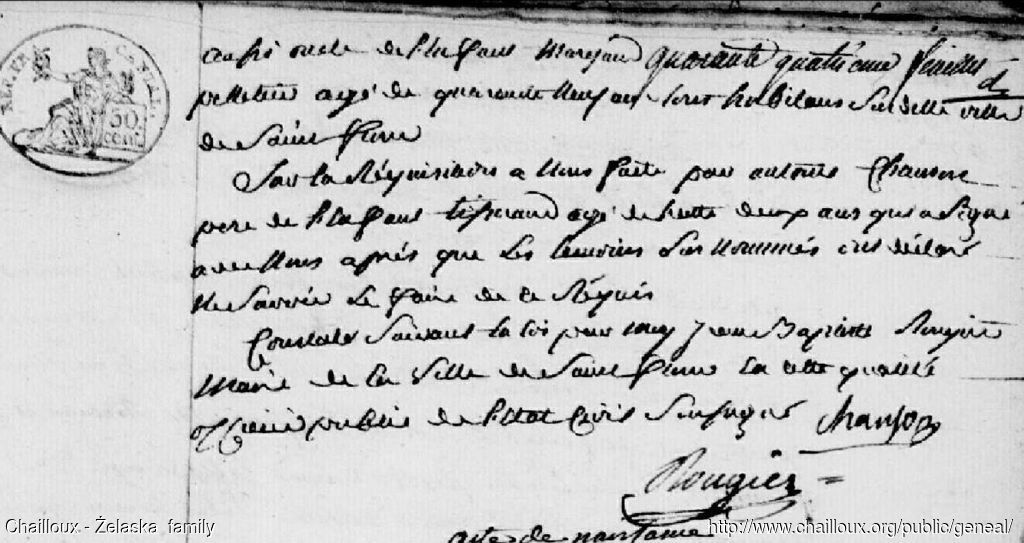 aussi oncle de l'enfant
quarante quatrieme feuillet
pelletier agé de quarante neuf ans tous habitans sur dette ville
de Saint
Sur la Réquisition a Nous faite par antoine Chanson
pere de l'enfant tisserand agé de trente deux ans qui a Signé
avec Nous après que Les temoins Sus nommés ont déclaré
Ne Savoir Le faire de ce Réquis
Constaté Suivant la loi par moy Jean Baptiste Rougier
Maire de La Ville de Saint
officier public de l'Etat Civil Soussigné Chanson
Rougier
acte de naissance
50
cent.
Chailloux - Żelaska family
http://www.chailloux.org/public/geneal/